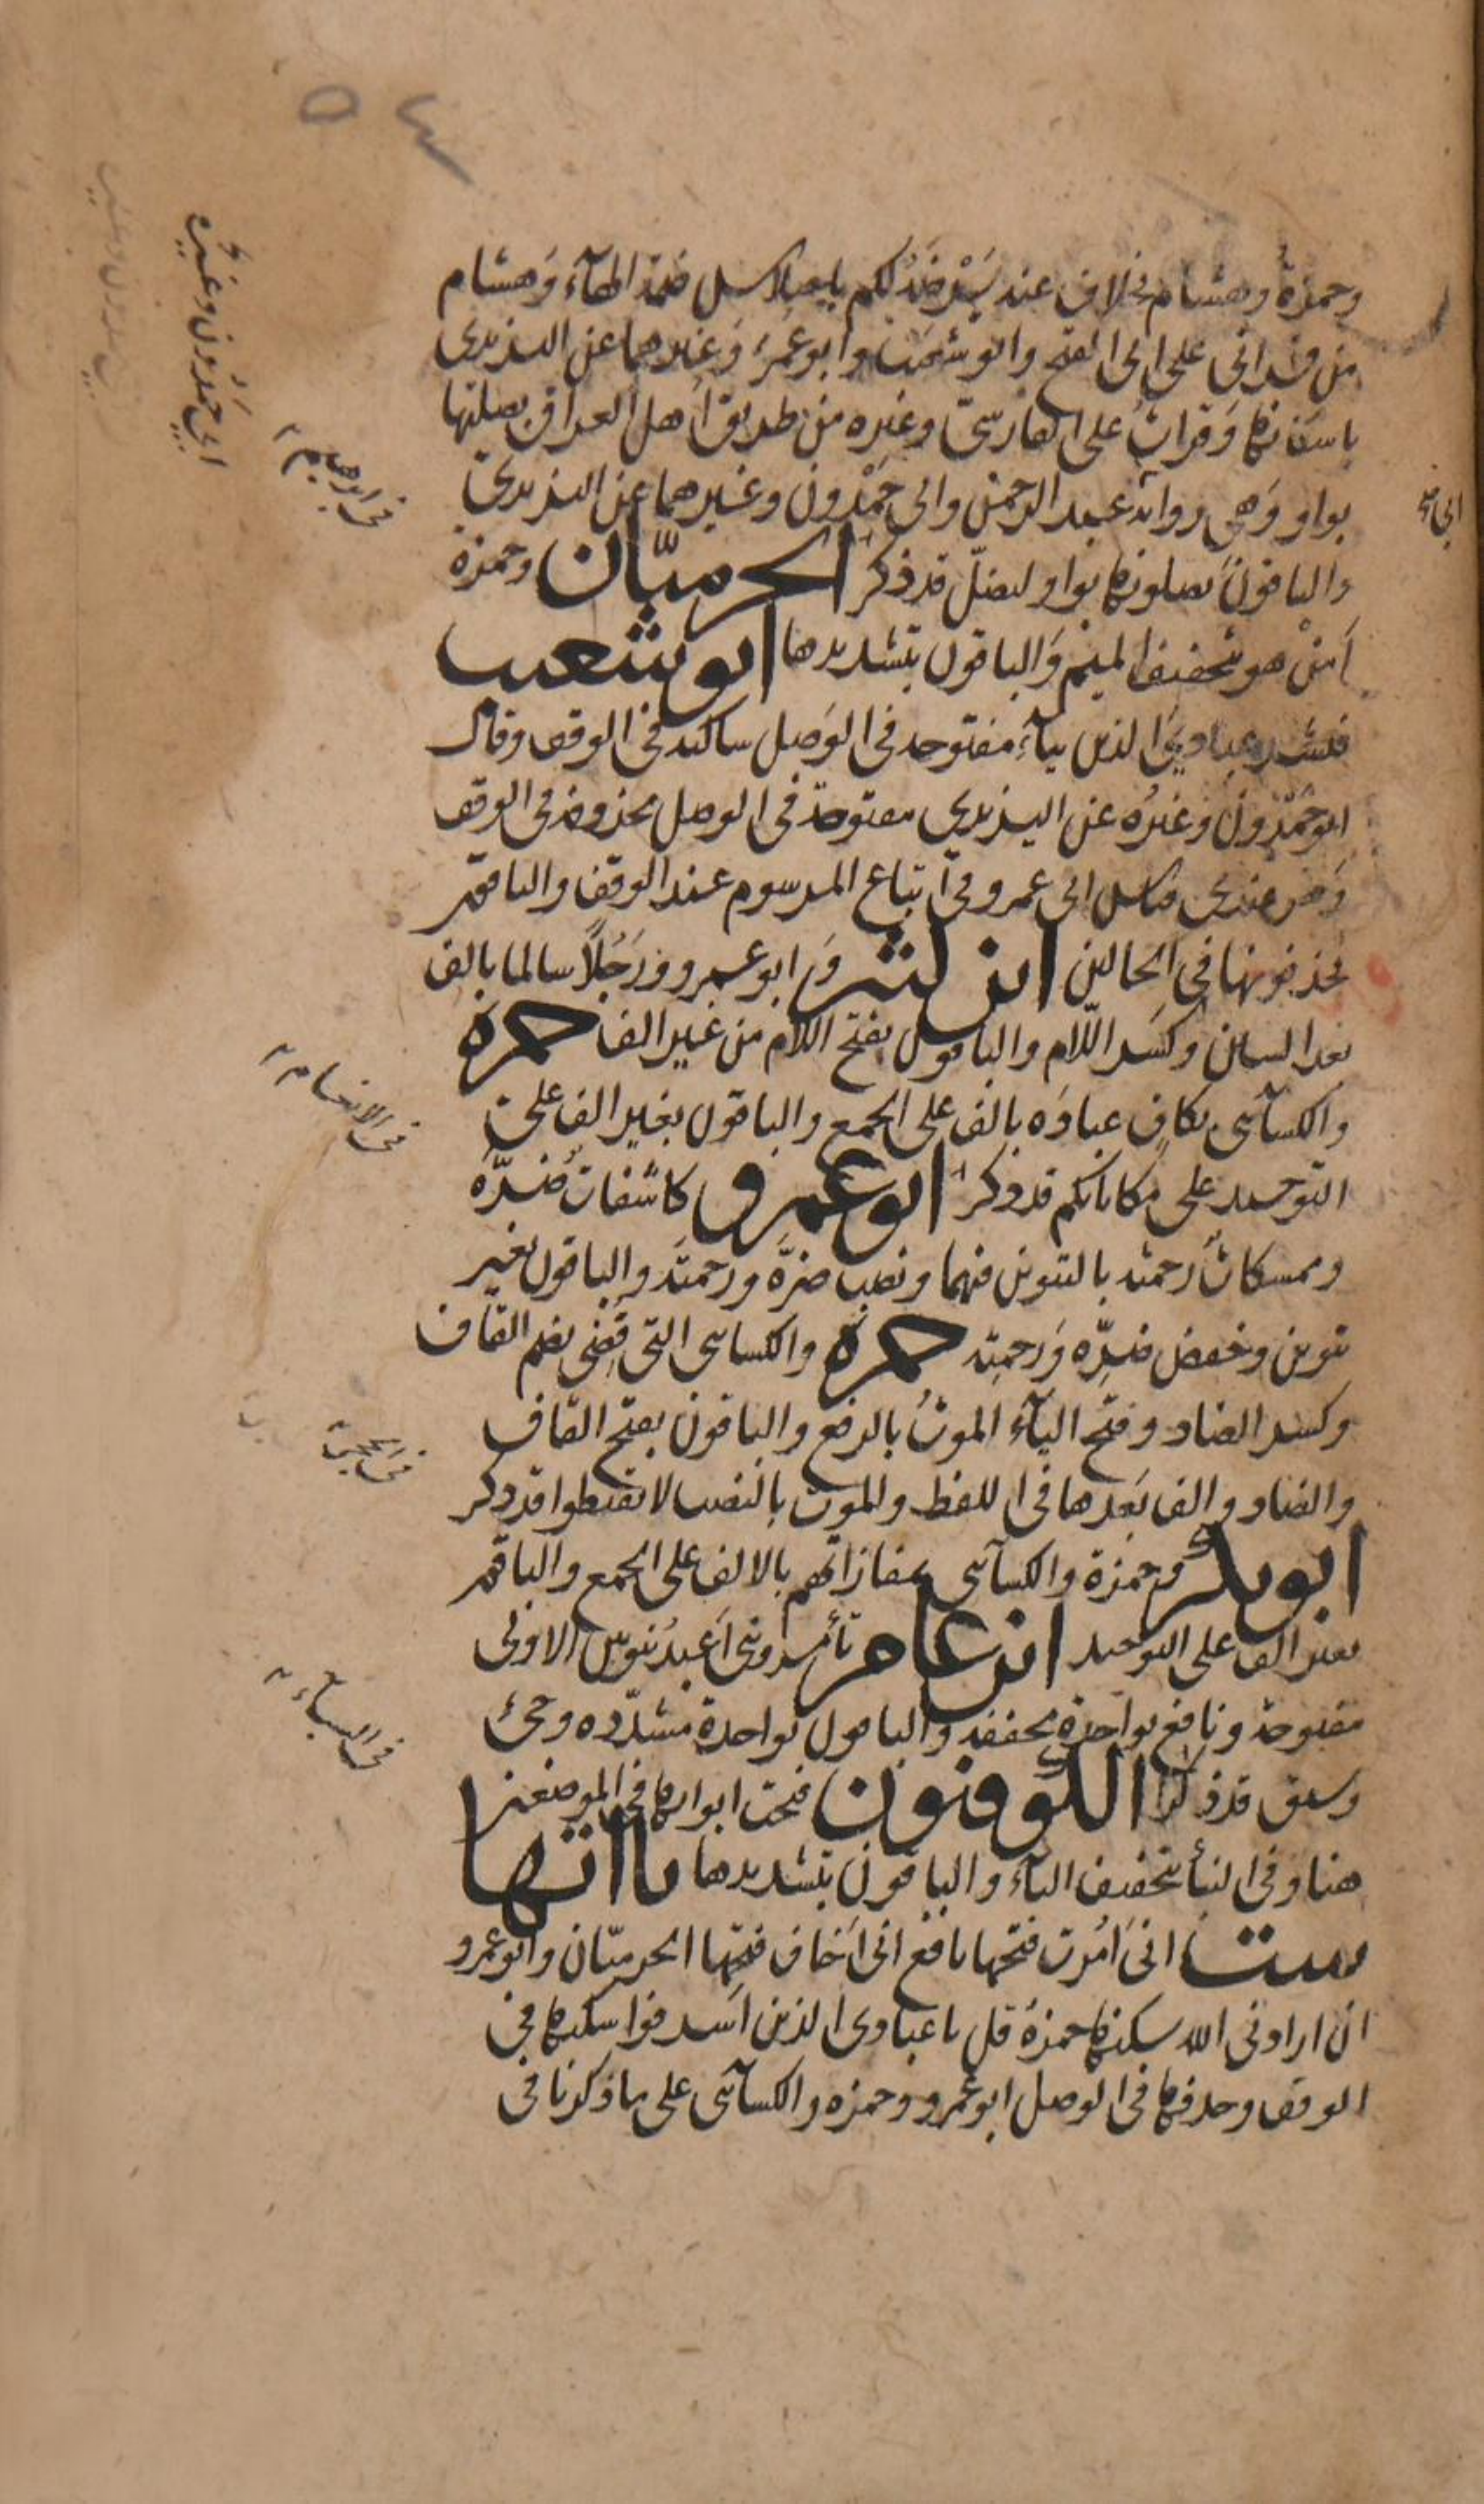 ٥٤
وحمزة وهشام بخلاف عنه يَرْضَهُ لكم باختلاس ضمة الهآء وهشام
من قراءتي على ابى الفتح وابو شعيب وابو عُمَر وَغيرهما عن اليزيدى
باسكانها وَقرات على الفارسىّ وغيره من طريق أهل العراق بصلتها
بواو وَهى رواية عبد الرحمن وابى حَمْدون وغيرهما عن اليزيدىّ
والباقونَ يصلونها بواو ليضلّ قد ذكر الحرميّان وحمزة
اَمَنْ هو بتخفيف الميم وَالباقون بتشديدها ابو شعيب
فبشر عبادىَ الذين بيآءٍ مفتوحة فى الوَصل ساكنة فى الوقف وقال
ابو حَمْدون وَغيرُه عن اليزيدي مفتوحة فى الوصل محذوفة فى الوقف
وَهو عندى قياس ابى عمرو فى اتباع المرسوم عند الوقف والباقون
يحذفونها فى الحالين ابن كثير وَابو عمرو ورَجُلاً سالما بالف
بعد السين وكَسر اللّام والباقون بفتح اللام من غير الف حمزة
والكسآئى بكافٍ عباده بالف على الجمع والباقون بغير الف على
التوحيد على مكاناتكم قد ذكر ابو عمرو كاشفاتٌ ضُرَّهُ
وممسكاتٌ رحمتَه بالتنوين فيهما ونصب ضرَّه ورحمتَه والباقون بغير
تنوين وخفض ضرِّه وَرحمتِه حمزة والكسائى التى قُضى بضم القاف
وكسر الضاد وفتح اليآء الموتُ بالرفع والباقون بفتح القاف
والضاد والف بَعدها فى اللفظ والموت بالنصب لا تقنطوا قد ذكر
ابو بكر وحمزة والكسآئى بمفازاتهم بالالف على الجمع والباقون
بغير الف على التوحيد ابن عامر تأمرونى اَعبدُ بنونين الاولى
مفتوحة ونافع بواحدة مخففة والباقون بواحدة مشدّده وجئ
وسيق قد ذكرا الكوفيون فتحت ابوابها فى الموضعين
هنا وفى النبأ بتخفيف التآء والباقون بتشديدها ياءاتها
ست انىَ اُمرت فتحها نافع انىَ اَخاف فتحها الحرميّان وابو عمرو
ان ارادنى الله سكنها حمزة قل يا عبادى الذين اَسرفوا سكنها فى
الوقف وحذفها فى الوصل ابو عمرو وحمزه والكسآئى على ما ذكرنا فى
ابى حمدون وغيره
فى ابرهيم
فى الانعام
فى الحجر
فى النساء